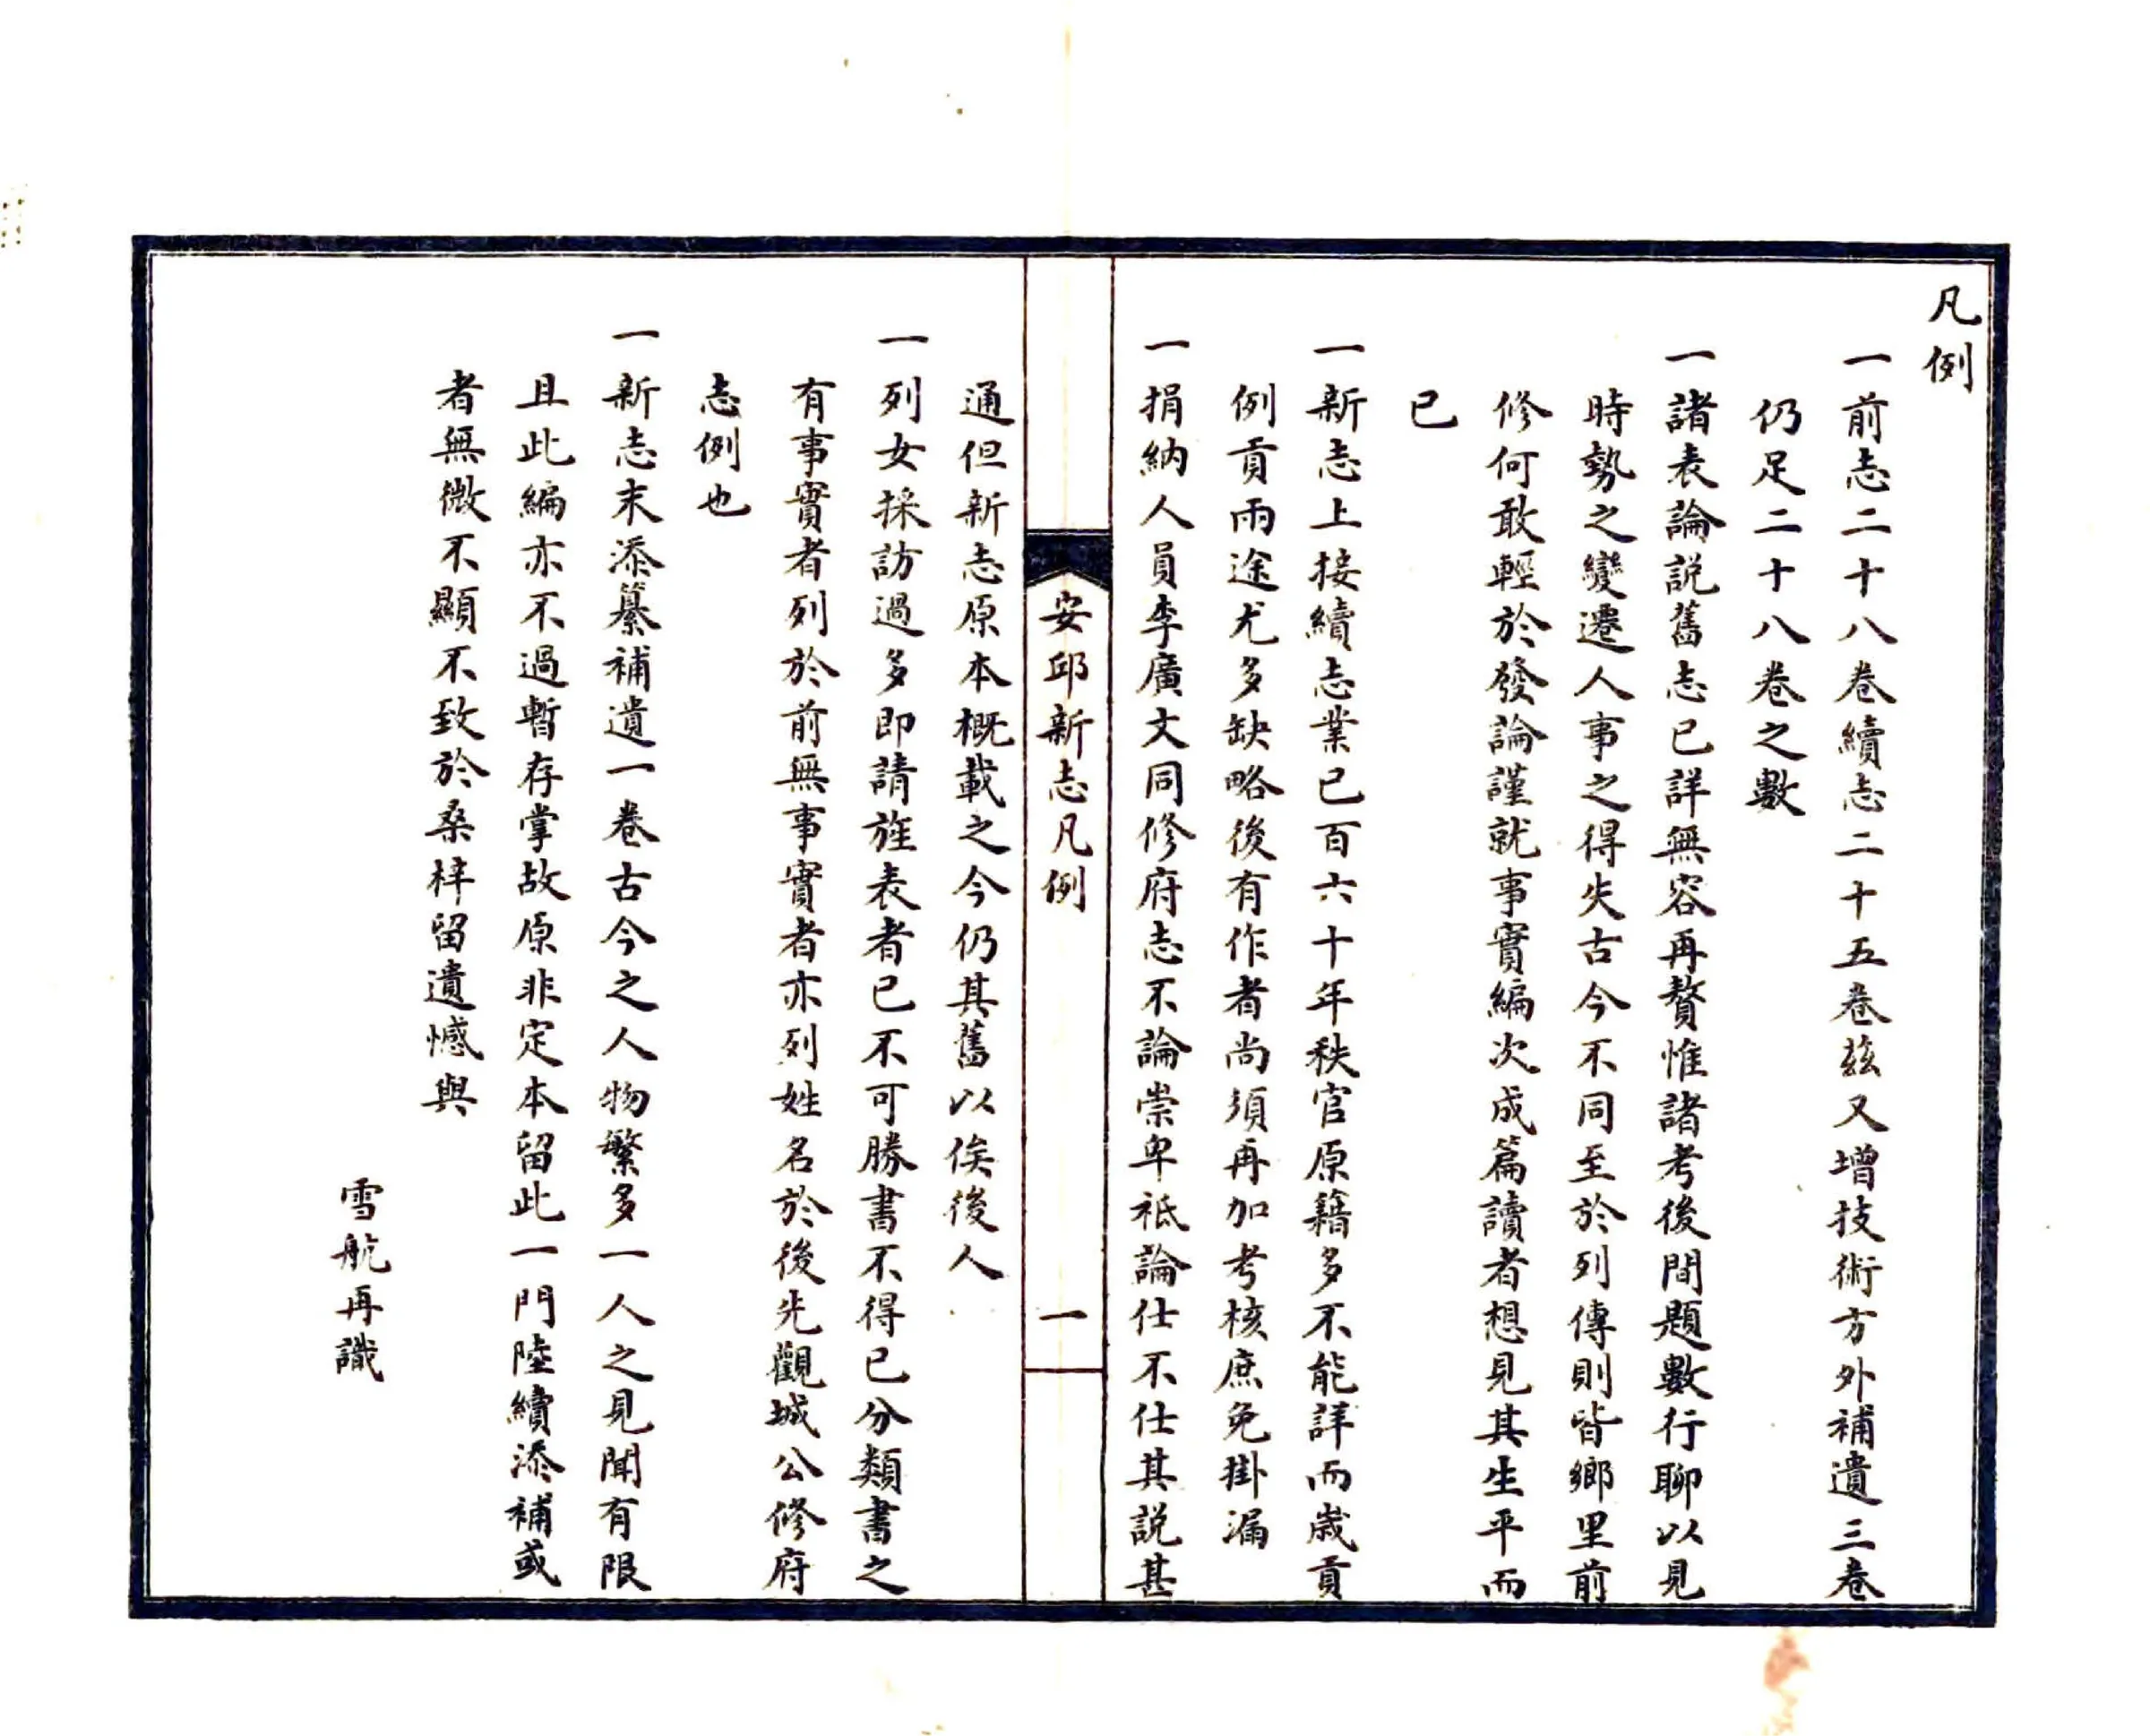 凡例
一前志二十八卷續志二十五卷茲又增技術方外補遺三卷
仍足二十八卷之數
一諸表論説舊志已詳無容再贅惟諸考後間題數行聊以見
時勢之變遷人事之得失古今不同至於列傳則皆鄉里前
修何敢輕於發論謹就事實編次成篇讀者想見其生平而
已
一新志上接續志業已百六十年秩官原籍多不能詳而歲貢
例貢兩途尤多缺略後有作者尚須再加考核庶免掛漏
一捐納人員李廣文同修府志不論崇卑祇論仕不仕其説甚
安邱新志凡例
一
通但新志原本概載之今仍其舊以俟後人
一列女採訪過多即請旌表者已不可勝書不得已分類書之
有事實者列於前無事實者亦列姓名於後先觀城公修府
志例也
一新志末添纂補遺一卷古今之人物繁多一人之見聞有限
且此編亦不過暫存掌故原非定本留此一門陸續添補或
者無微不顯不致於桑梓留遺憾與
雪航再識